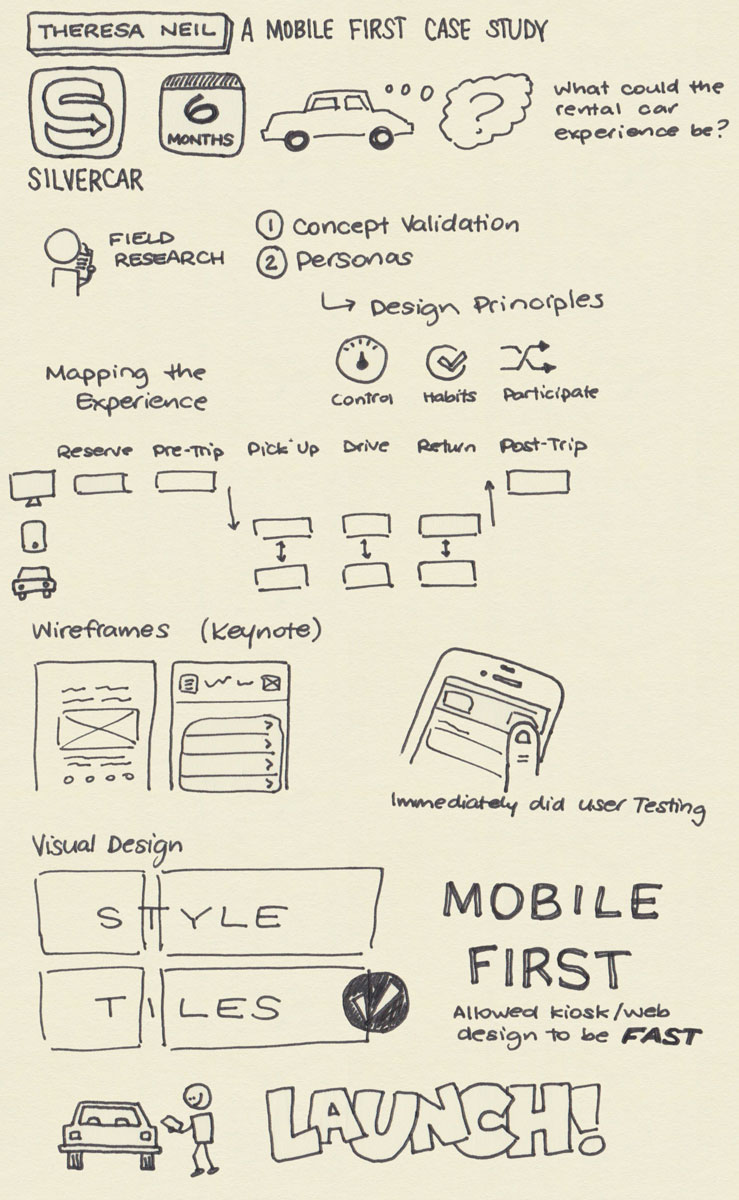 THERESA NEIL A MOBILE FIRST CASE STUDY
S
6
MONTHS
?
What could the
rental car
experience be?
SILVERCAR
FIELD
RESEARCH
1 Concept Validation
2 Personas
Design Principles
Control Habits Participate
Mapping the
Experience
Reserve Pre-Trip Pick Up Drive Return Post-Trip
Wireframes (Keynote)
Immediately did user Testing
Visual Design
STYLE
TILES
MOBILE
FIRST
Allowed kiosk/web
design to be FAST
LAUNCH!